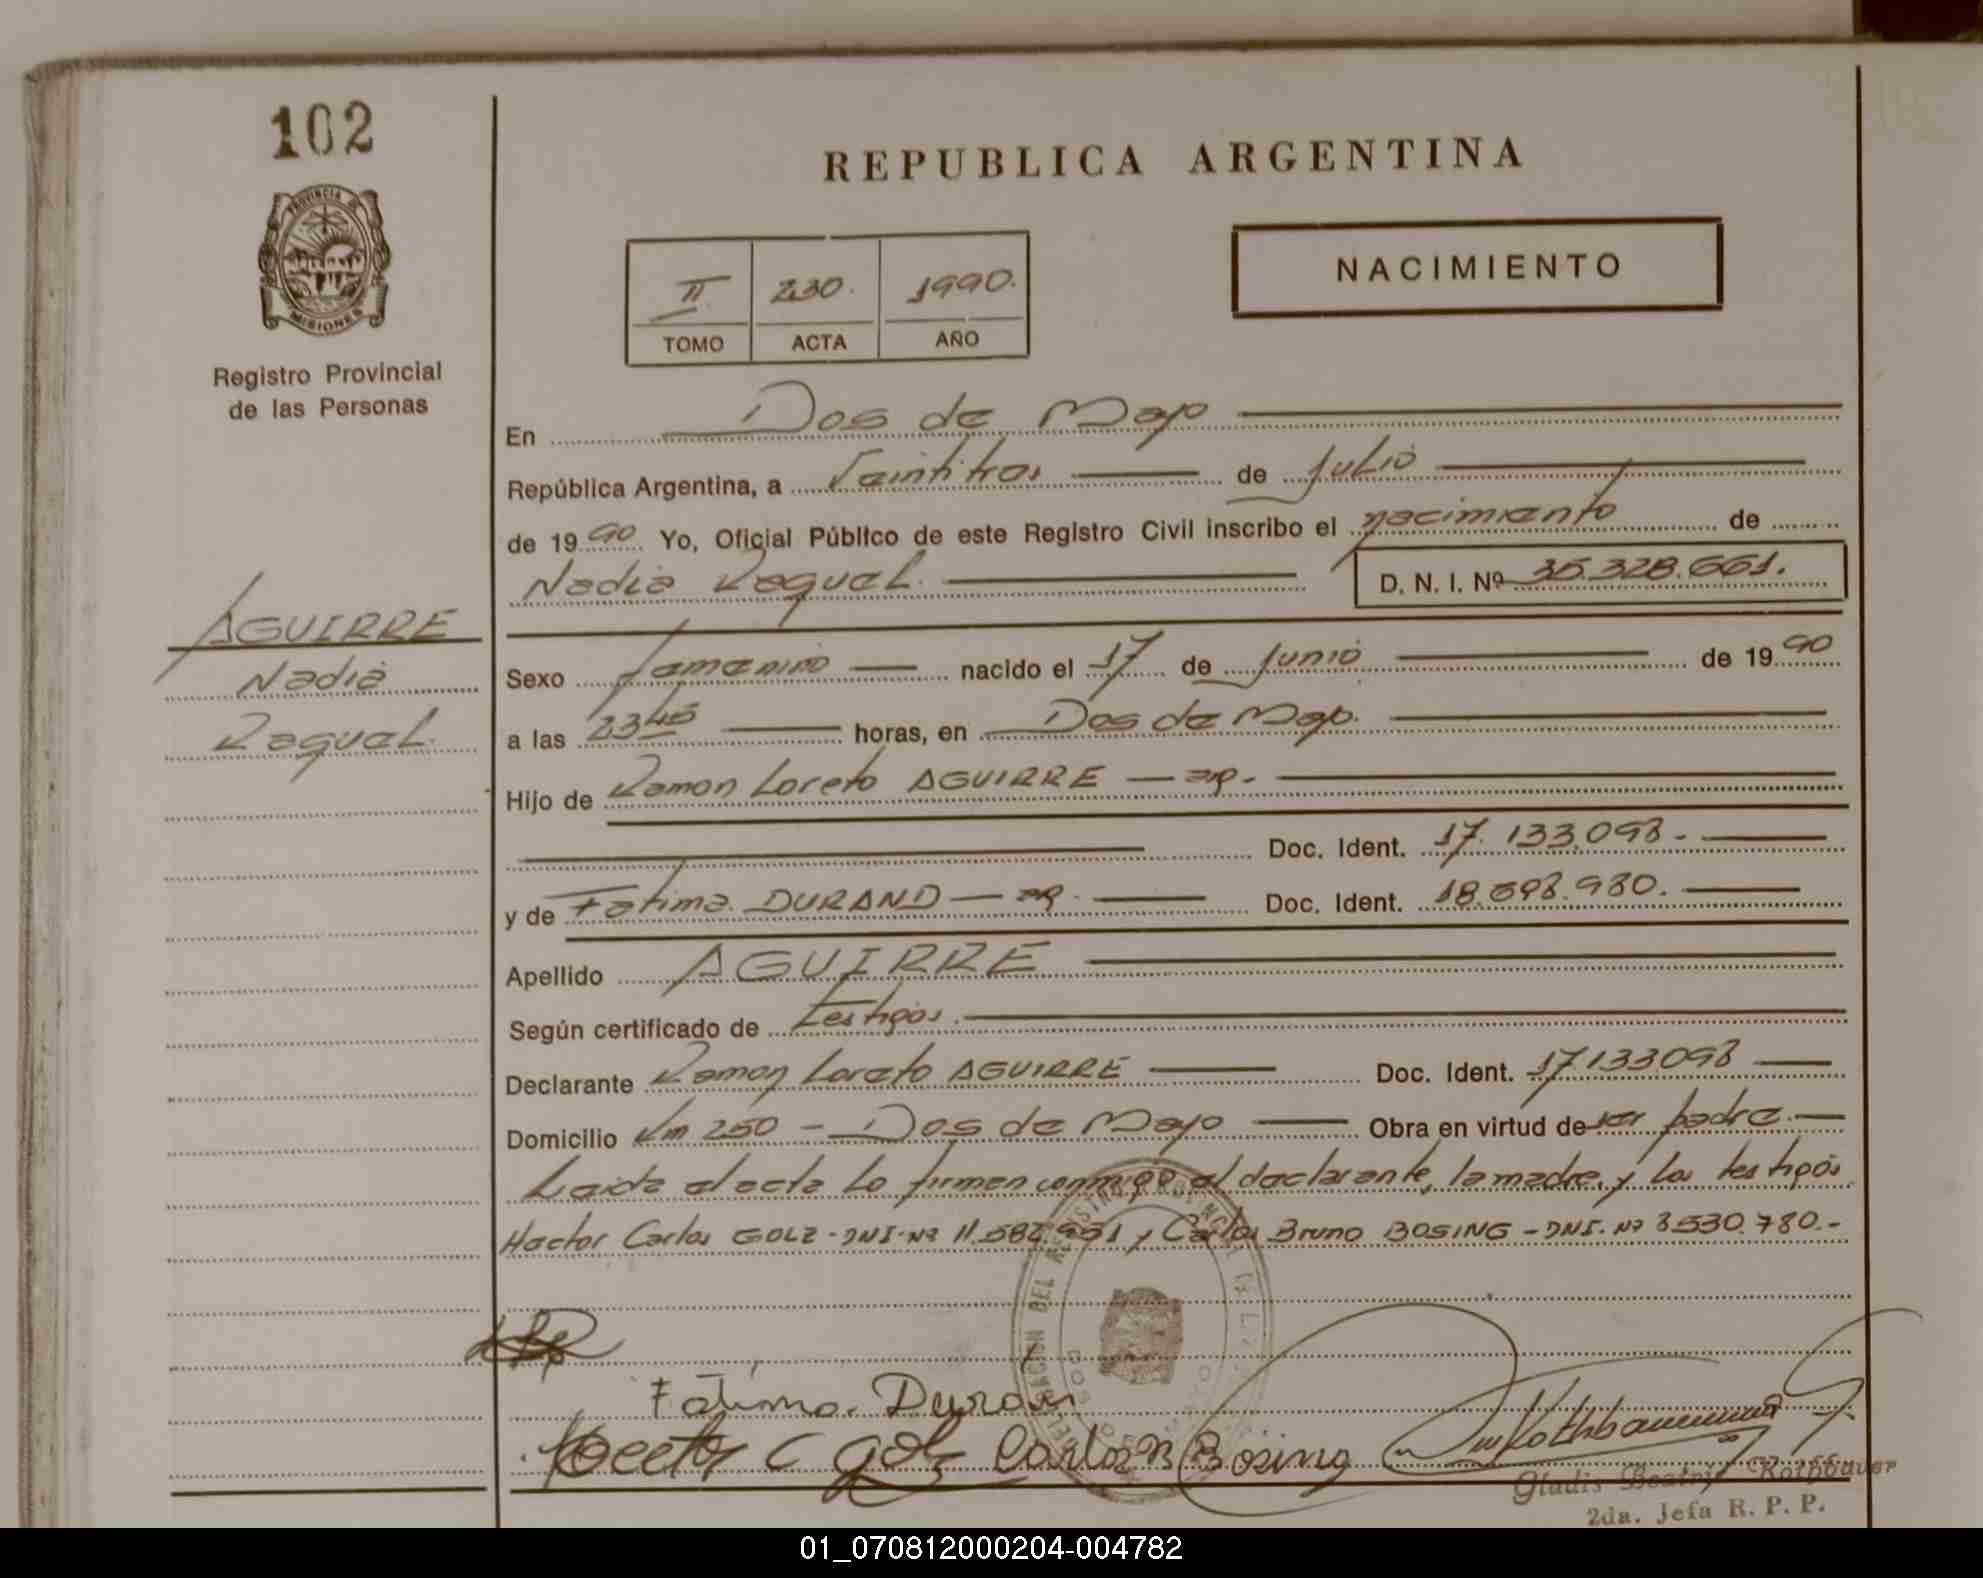 102
PROVINCIA DE
MISIONES
Registro Provincial
de las Personas
AGUIRRE
Nadia
Raquel
REPUBLICA ARGENTINA
II 230. 1990.
TOMO ACTA AÑO
NACIMIENTO
En Dos de Mayo
República Argentina, a Veintitres de Julio
de 1990 Yo, Oficial Público de este Registro Civil inscribo el nacimiento de
Nadia Raquel. D. N. I. Nº 35.328.661.
Sexo femenino nacido el 17 de Junio de 1990
a las 2345 horas, en Dos de Mayo.
Hijo de Ramon Loreto AGUIRRE — ap.
Doc. Ident. 17.133.098.-
y de Fatima DURAND — ap. Doc. Ident. 18.698.980.
Apellido AGUIRRE
Según certificado de Testigos.
Declarante Ramon Loreto AGUIRRE Doc. Ident. 17133098
Domicilio Km 250 - Dos de Mayo Obra en virtud de ser padre.
Leida el acta lo firman conmigo el declarante, la madre y los testigos
Hector Carlos GOLZ - DNI. Nº 11.582.951 y Carlos Bruno BOSING - DNI. Nº 8.530.780.-
Fátima. Duran
Hector C Golz Carlos B Bosing
Gladis Beatriz Rothbauer
2da. Jefa R. P. P.
01_070812000204-004782